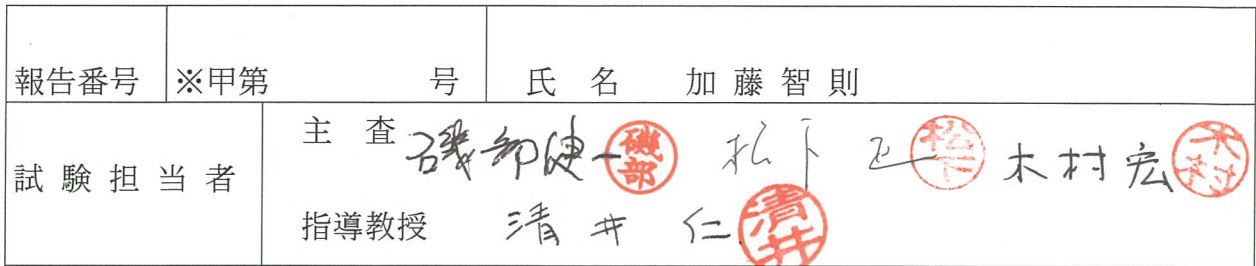 報告番号 ※甲第 号 氏 名 加 藤 智 則
試 験 担 当 者
主 査 磯部健一 磯部 松下 正 松下 木村宏 木村
指導教授 清井 仁 清井